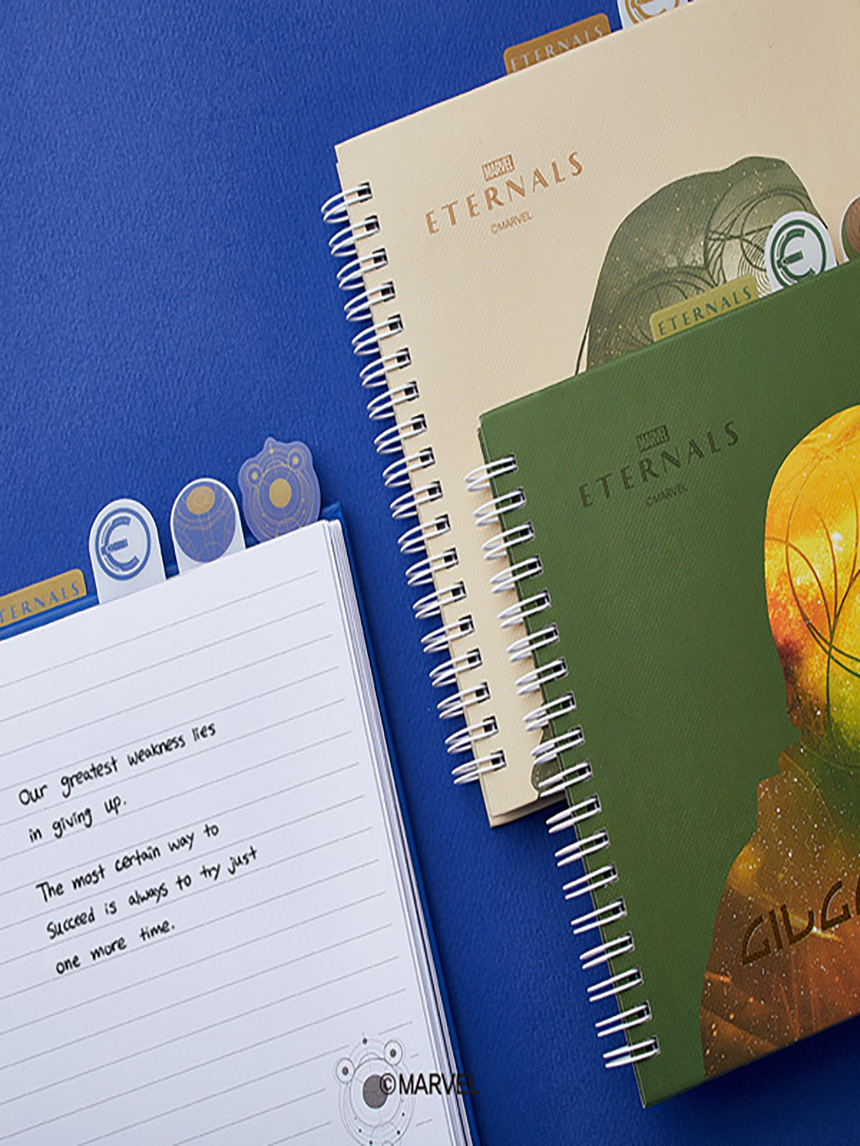 ETERNALS
MARVEL
ETERNALS
©MARVEL
ETERNALS
MARVEL
ETERNALS
©MARVEL
ETERNALS
Our greatest weakness lies
in giving up.
The most certain way to
Succeed is always to try just
one more time.
©MARVEL